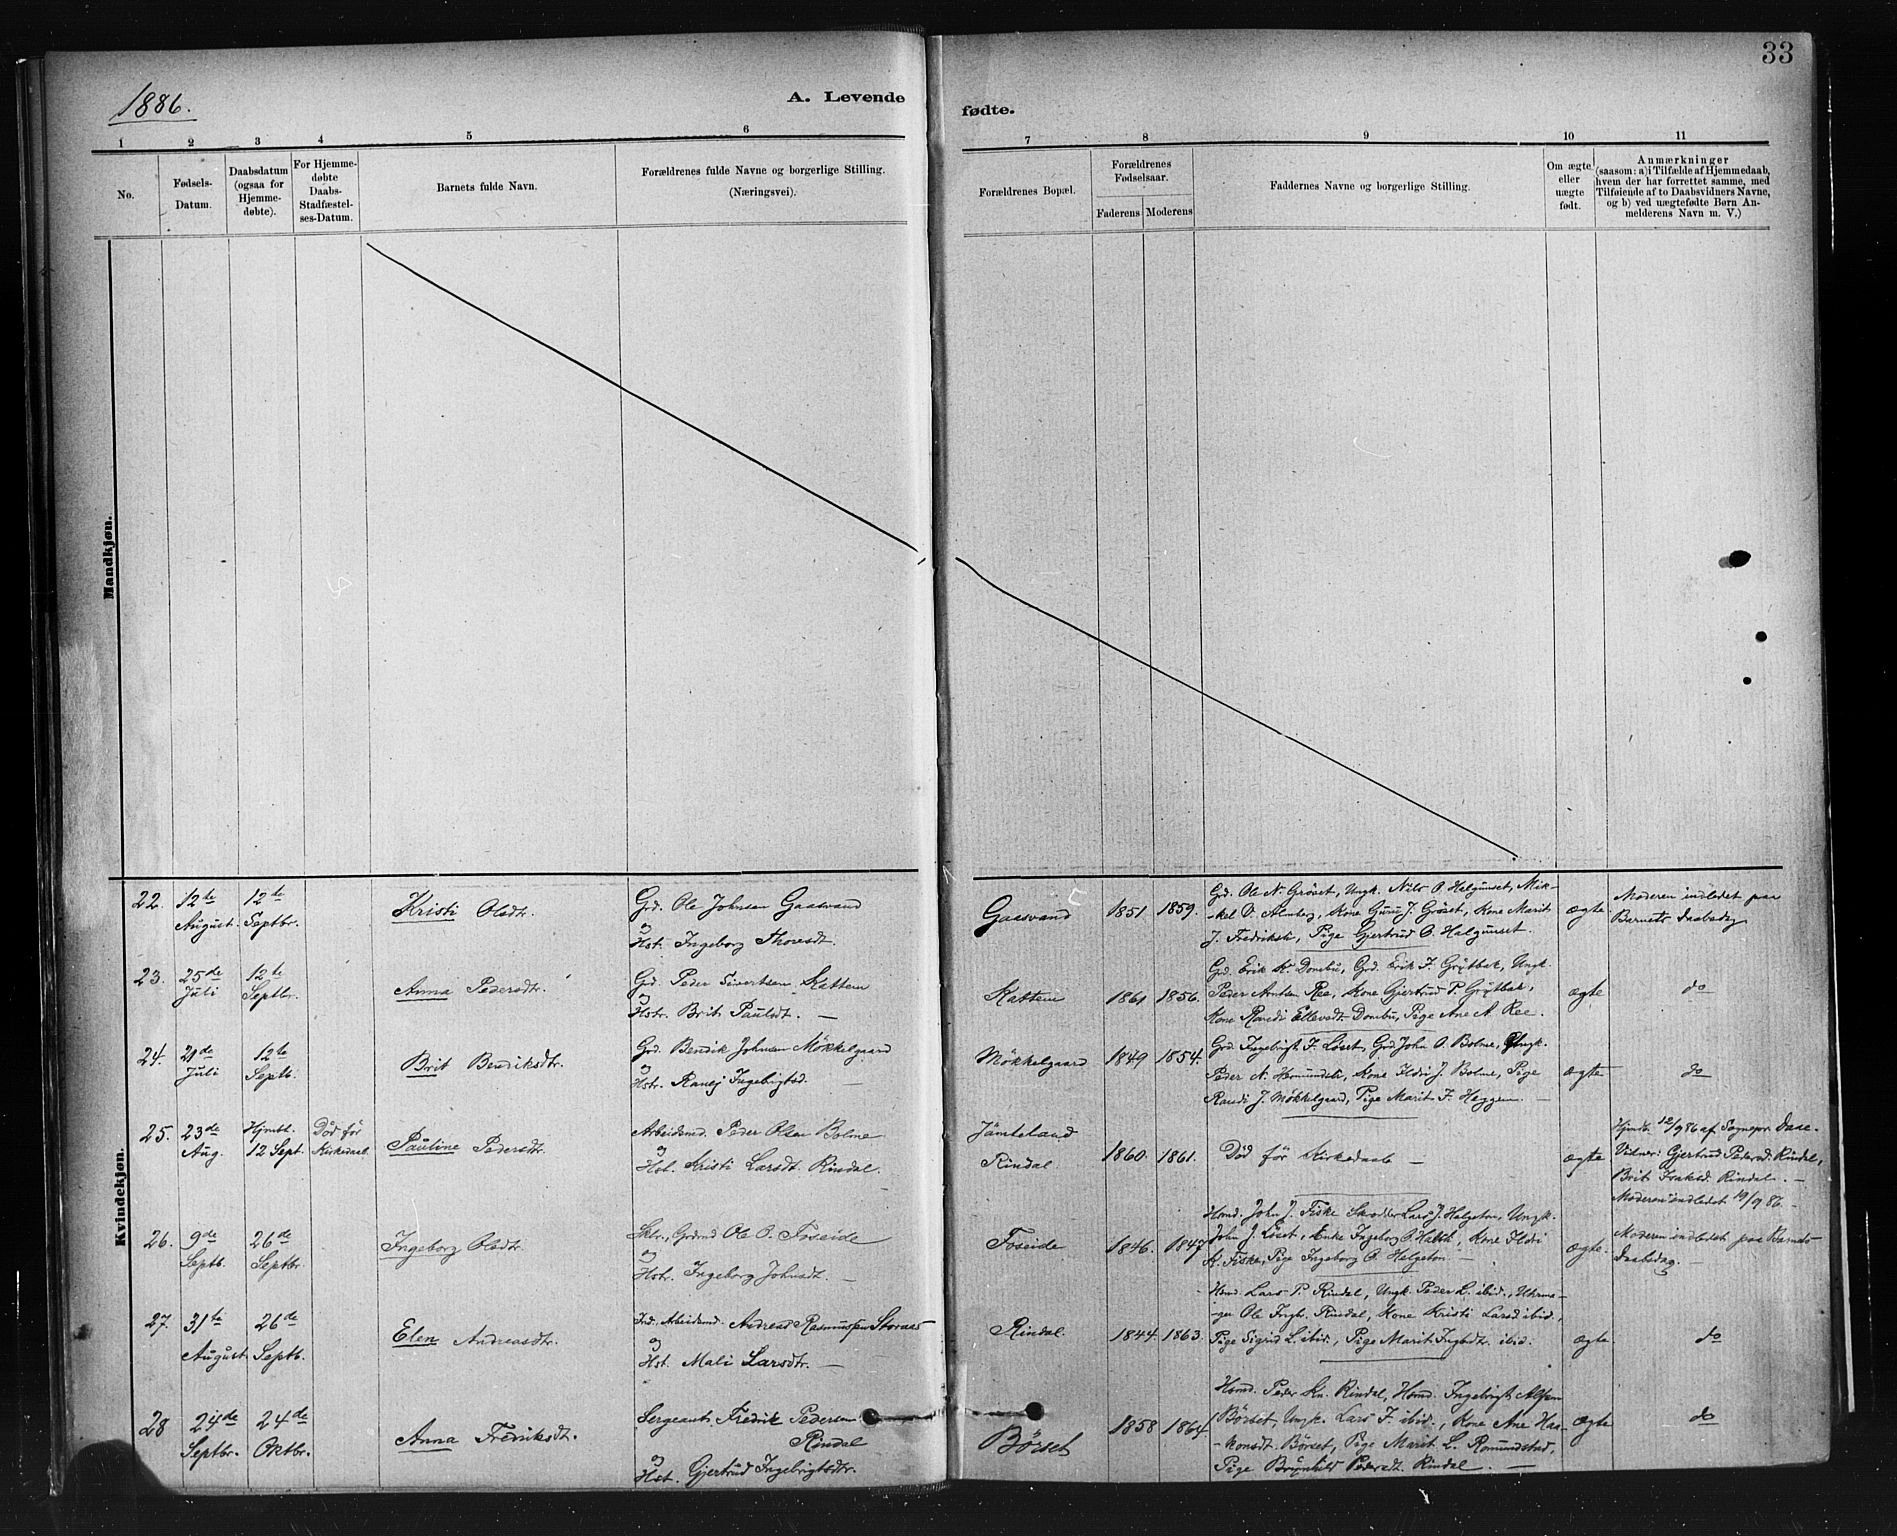 33
1886.
A. Levende
fødte.
1 2 3 4 5 6 7 8 9 10 11
No.
Fødsels-
Datum.
Daabsdatum
(ogsaa for
Hjemme-
døbte).
For Hjemme-
døbte
Daabs-
Stadfæstel-
ses-Datum.
Barnets fulde Navn.
Forældrenes fulde Navne og borgerlige Stilling.
(Næringsvei).
Forældrenes Bopæl.
Forældrenes
Fødselsaar.
Faderens Moderens
Faddernes Navne og borgerlige Stilling.
Om ægte
eller
uægte
født.
Anmærkninger
(saasom: a) i Tilfælde af Hjemmedaab,
hvem der har forrettet samme, med
Tilføiende af to Daabsvidners Navne,
og b) ved uægtefødte Børn An-
melderens Navn m. V.)
Mandkjøn.
Kvindekjøn.
22.
12te
August
12te
Septbr.
Kristi Olsdt.
Grd. Ole Johnsen Gaasvand
og
Hst. Ingeborg Thoresdt.
Gaasvand
1851 1859.
Grd. Ole N. Grøset, Ungk. Nils O. Halgunset, Mik-
kel O. Almberg, Kone Guru J. Grøset, Kone Marit
J. Fredriksli, Pige Gjertrud O. Halgunset.
ægte
Moderen indledet paa
Barnets Daabsdag
23.
25de
Juli
12te
Septbr.
Anna Pedersdtr.
Grd. Peder Sivertsen Kattem
og
Hstr. Brit Paulsdt. —
Kattem
1861 1856.
Grd. Erik K. Donebu, Grd. Erik F. Grytbak, Ungk.
Peder Arntsen Ree, Kone Gjertrud P. Grytbak,
Kone Randi Ellevsdt. Donebu, Pige Ane A. Ree.
ægte
do
24.
21de
Juli
12te
Septb.
Brit Bendriksdtr.
Grd. Bendik Johnsen Møkkelgaard
og
Hst. Ranej Ingebrigtsd. —
Møkkelgaard
1849 1854.
Grd. Ingebrigt F. Løset, Grd. John O. Bolme, Ungk.
Peder N. Hemundsli, Kone Ildri J. Bolme, Pige
Randi J. Møkkelgaard, Pige Marit F. Heggem —
ægte
do
25.
23de
Aug.
Hjmbt.
12 Sept.
Død før
Kirkedaab.
Pauline Pedersdtr.
Arbeidsmd. Peder Olsen Bolme
og
Hst. Kristi Larsdt. Rindal.
Jämteland
Rindal.
1860. 1861.
Død før Kirkedaab —
ægte
Hjmdb. 12/9 86 af Sognepr. Daae.
Vidner: Gjertrud Pedersd. Rindal,
Brit Isaksd. Rindal. —
Moderen indledet 19/9 86. —
26.
9de
Septb.
26de
Septbr.
Ingeborg Olsdtr.
Skr., Grdmd Ole O. Foseide
og
Hst. Ingeborg Johnsdt. —
Foseide
1846. 1847
Hsmd. John J. Fiske Skodder Lars J. Halgeton, Ungk.
John J. Løset, Enke Ingeborg P. , Kone Ildri
K. Fiske, Pige Ingeborg O. Halgeton. —
ægte.
Moderen indledet paa Barnets
Daabsdag. —
27.
31te
August
26de
Septb.
Elen Andreasdtr.
Ind. Arbeidsmd. Andreas Rasmussen Stornæs
og
Hst. Mali Larsdtr. —
Rindal.
1844. 1863.
Hsmd. Lars P. Rindal, Ungk. Peder L. ibid., Uhrma-
ger Ole Ingbr. Rindal, Kone Kristi Larsd. ibid.,
Pige Sigrid L. ibid., Pige Marit Ingbrdt. ibid.
ægte
do
28
24de
Septbr.
24de
Oktbr.
Anna Fredriksdt.
Sergeant Fredrik Pedersen
Rindal
og
Hst. Gjertrud Ingebrigtsdtr.
Børset
1858 1864
Hsmd. Peder Kn. Rindal, Hsmd. Ingebrigt Alfsen
Børset, Ungk. Lars F. ibid., Kone Ane Haa-
konsdt. Børset, Pige Marit L. Romundstad,
Pige Brynhild Pedersdt. Rindal. —
ægte
do